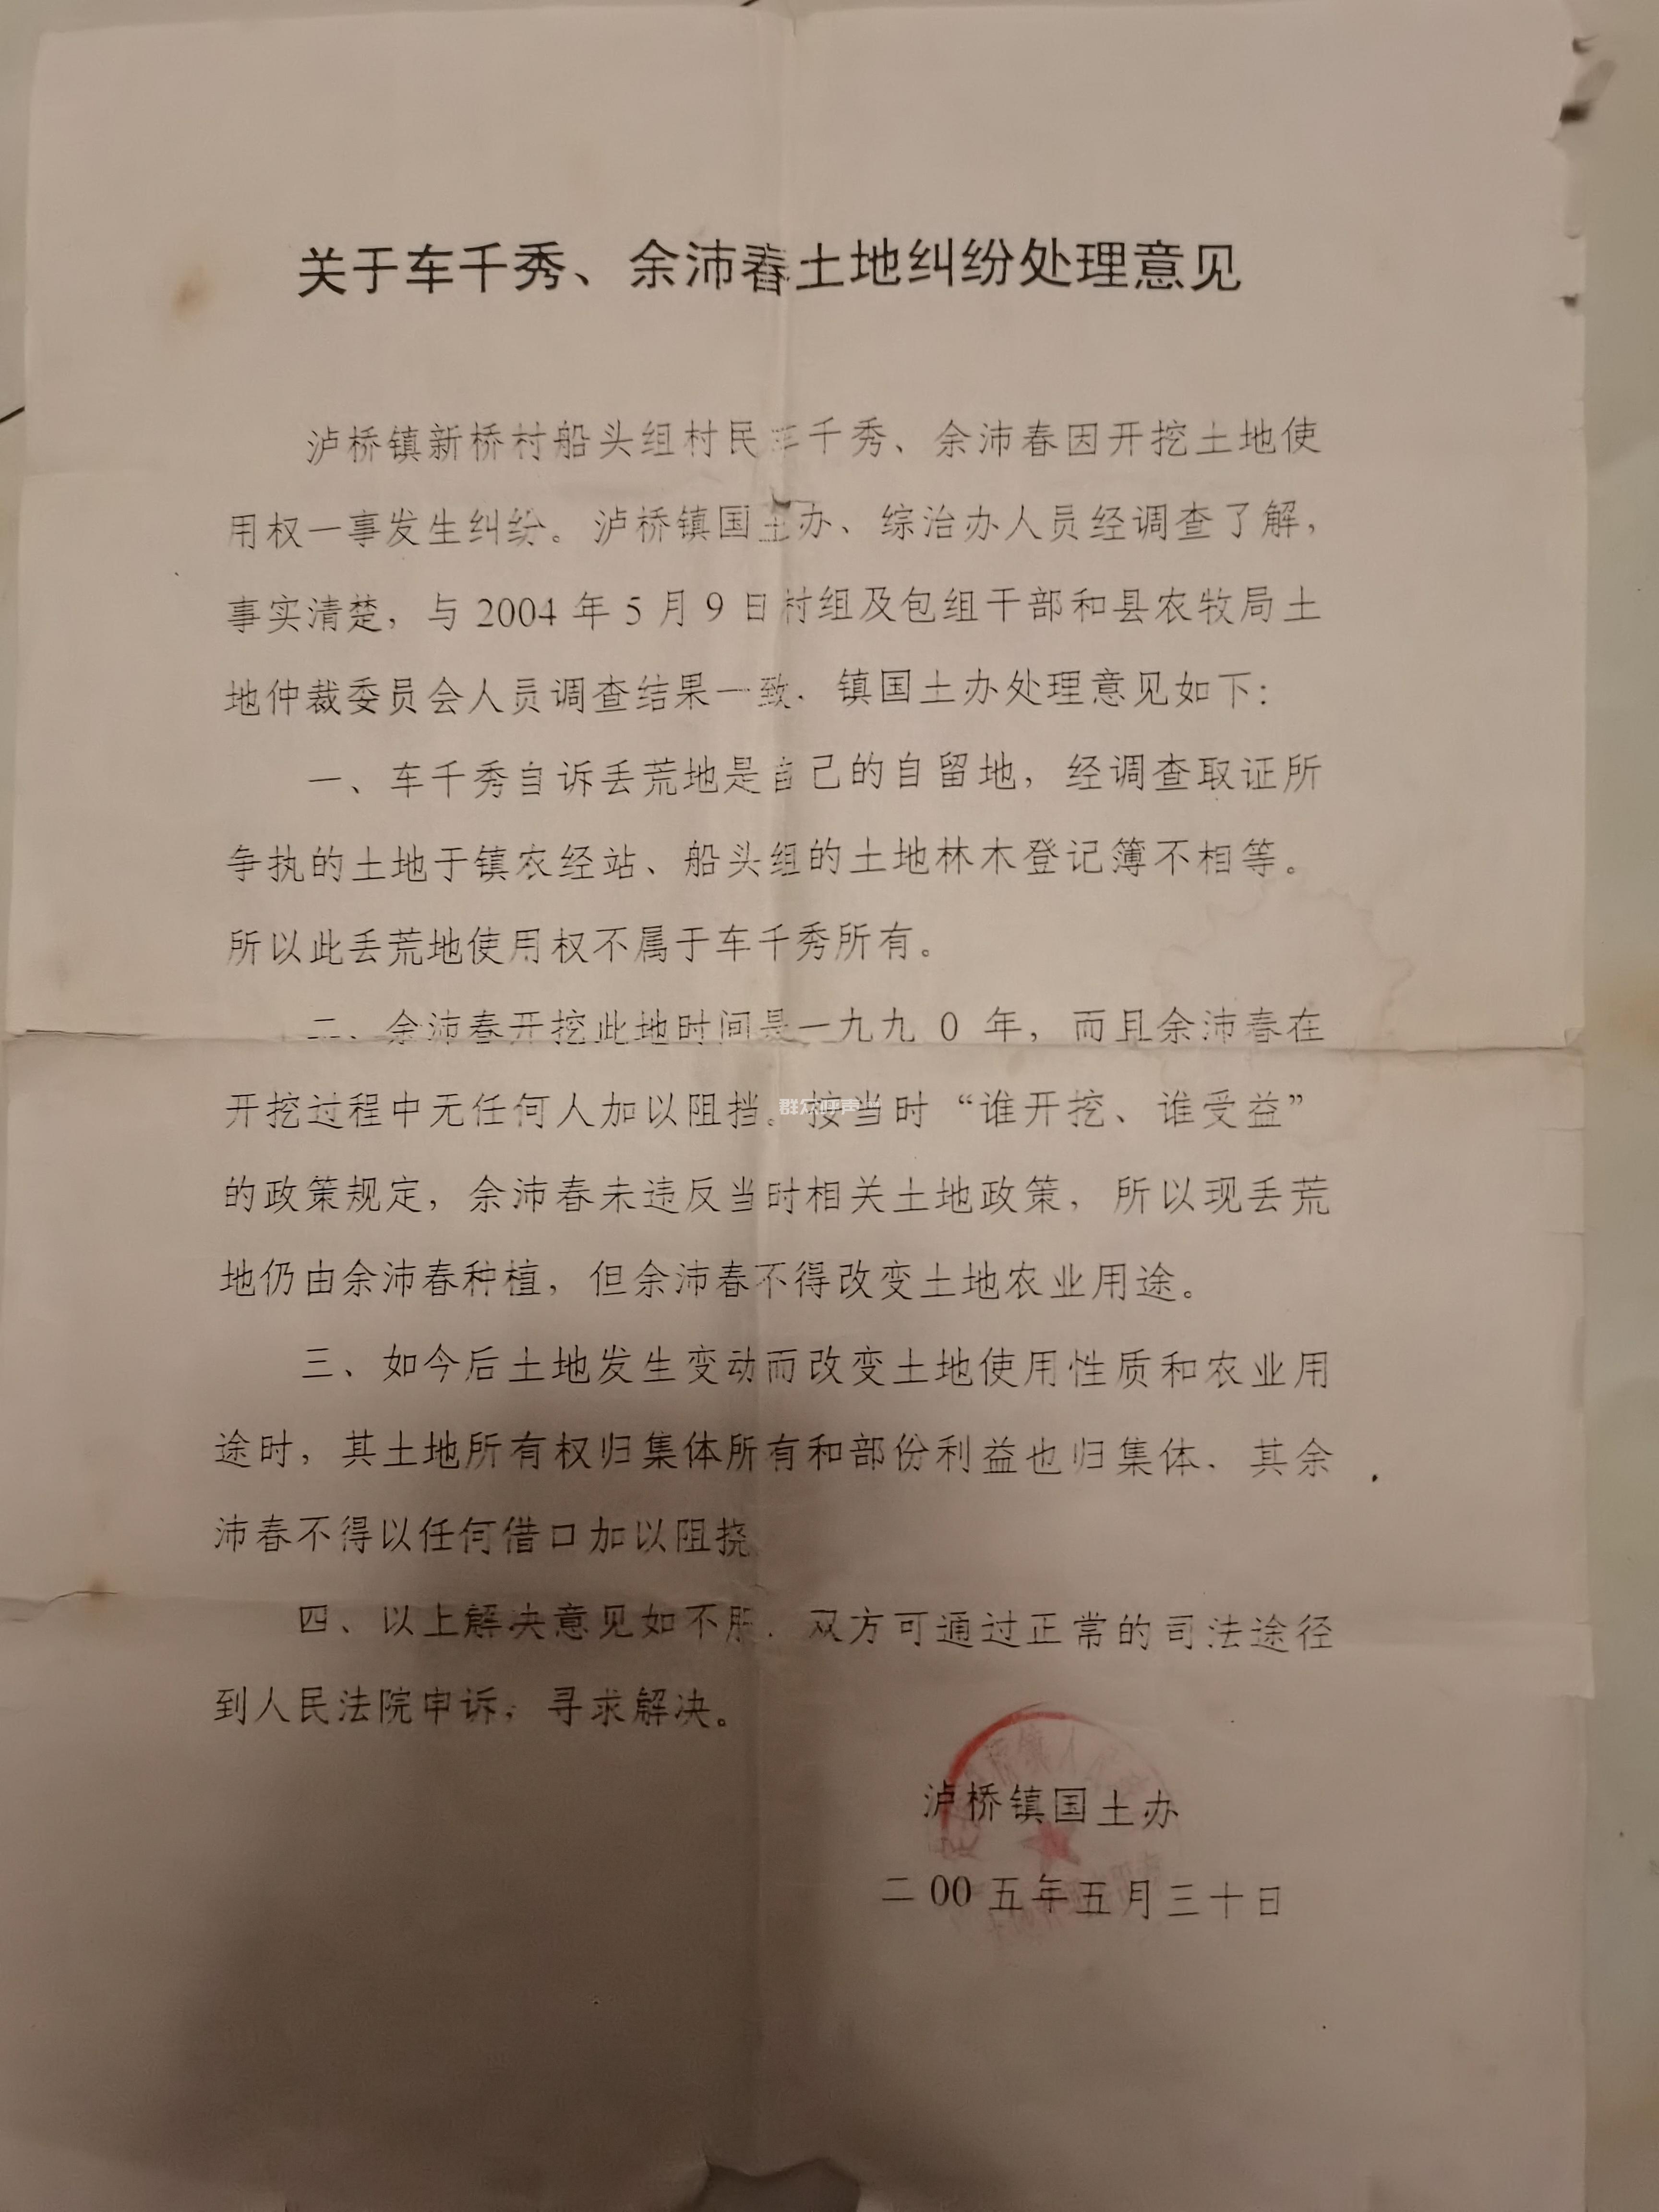 关于车千秀、余沛春土地纠纷处理意见
泸桥镇新桥村船头组村民车千秀、余沛春因开挖土地使
用权一事发生纠纷。泸桥镇国土办、综治办人员经调查了解，
事实清楚，与2004年5月9日村组及包组干部和县农牧局土
地仲裁委员会人员调查结果一致．镇国土办处理意见如下：
一、车千秀自诉丢荒地是自己的自留地，经调查取证所
争执的土地于镇农经站、船头组的土地林木登记簿不相等。
所以此丢荒地使用权不属于车千秀所有。
二、余沛春开挖此地时间是一九九0年，而且余沛春在
开挖过程中无任何人加以阻挡。按当时“谁开挖、谁受益”
群众呼声
的政策规定，余沛春未违反当时相关土地政策，所以现丢荒
地仍由余沛春种植，但余沛春不得改变土地农业用途。
三、如今后土地发生变动而改变土地使用性质和农业用
途时，其土地所有权归集体所有和部份利益也归集体．其余
沛春不得以任何借口加以阻挠
四、以上解决意见如不服．双方可通过正常的司法途径
到人民法院申诉，寻求解决。
泸桥镇国土办
二00五年五月三十日